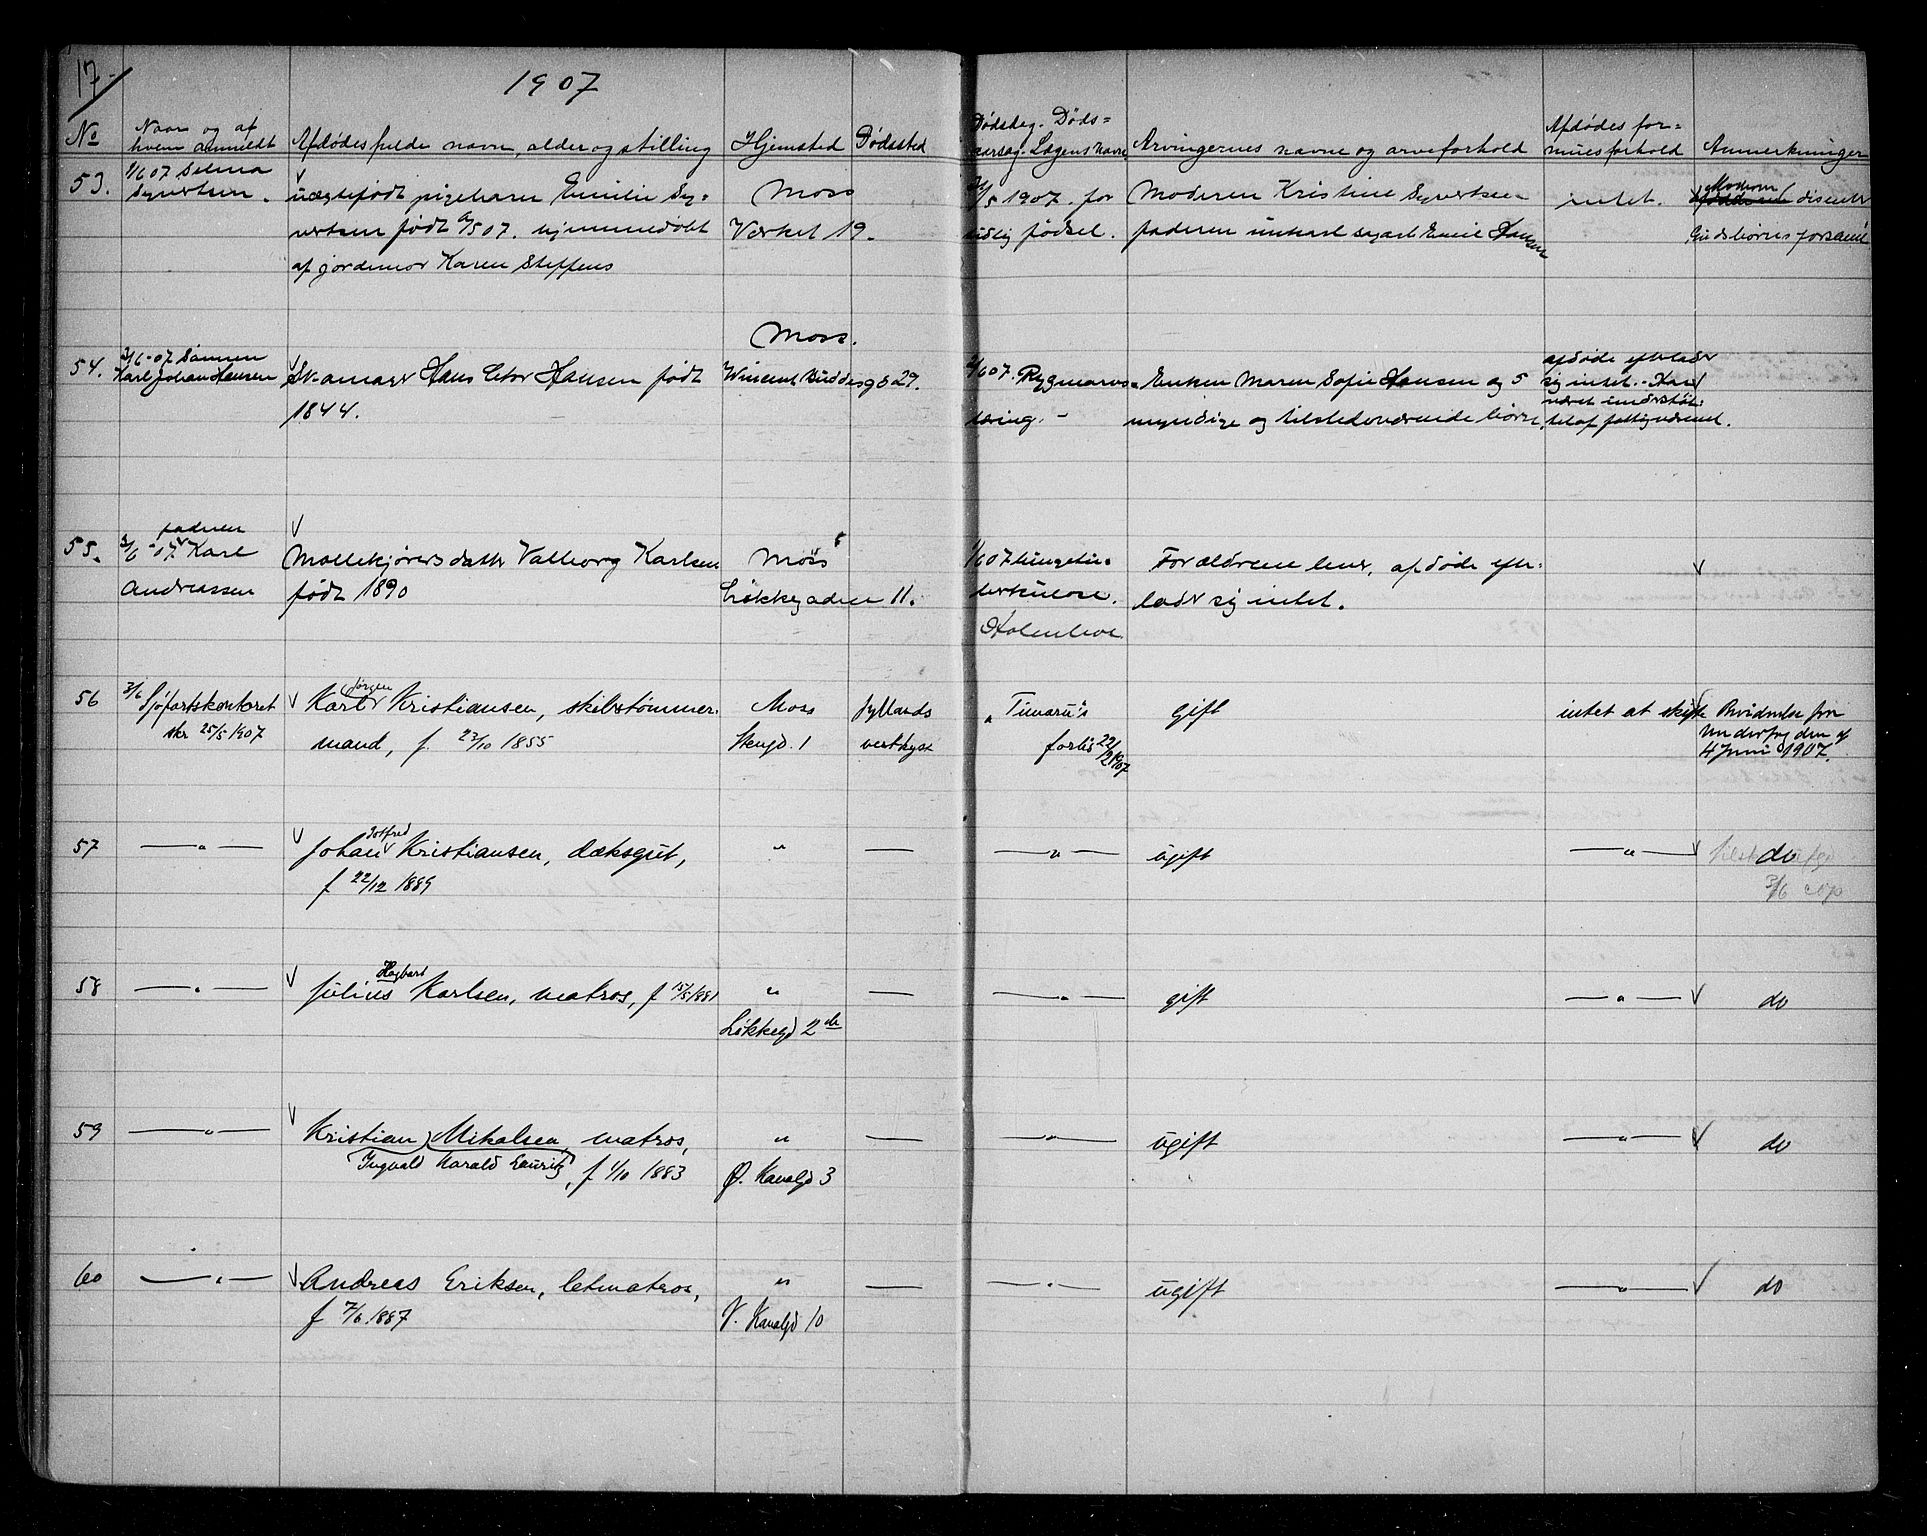 17
1907
No
Naar og af hvem anmeldt
Afdødes fulde navn, alder og stilling
Hjemsted
Dødssted
Dødsdag. Døds=
aarsag. Lægens navn
Arvingernes navne og arveforhold
Afdødes for=
muesforhold
Anmerkninger
53.
1/6 07 Selma
Syvertsen.
uægtefødt pigebarn Emilie Sy=
vertsen født /5 07. hjemmedøbt
af jordemor Karen Steffens
Moss
Værket 19.
/5 1907. for
tidlig fødsel.
Moderen Kristine Syvertsen
faderen unkarl Emil Hansen
intet.
Moderen
dissenter
Gudsbørns forsaml
54.
3/6-07 Sønnen
Karl Johan Hansen
Hans Hansen født
1844.
Moss.
Wincent Buddesg 29.
/6 07. Rygmarvs=
tæring. -
Enken Maren Sofie Hansen og 5
myndige og tilstedeværende børn.
afdøde efterlader
sig intet. - Har
været understøt=
tet af fattigvæsenet.
55.
3/6-07. faderen Karl
Andreassen
Møllekjørers datter Valborg Karlsen
født 1890
Moss
Løkkegaden 11.
1/6 07 lungetu=
berkulose.
Holenbroe
Forældrene lever, afdøde efter=
lader sig intet.
56
3/6 Sjøfartskontoret
skr 25/5 1907
Karl Jørgen Kristiansen, skibstømmer-
mand, f. 23/10 1855
Moss
Stengd. 1
Jyllands
vestkyst
"Timaru"s
forlis 22/2 1907
gift
intet at skifte
Bevidnelse fra
Underfogden af
4 Juni 1907.
57
— " —
Johan Gotfred Kristiansen, dæksgut,
f 22/12 1889
"
—
— " —
ugift
— " —
do
3/6
58
— " —
Julius Hagbart Karlsen, matros, f 15/5 1881
"
Løkkegd 2de
—
— " —
gift
— " —
do
59
— " —
Kristian Mikalsen, matros,
Ingvald Harald Lauritz, f 1/10 1883
"
Ø. Kanalgd 3
—
— " —
ugift
— " —
do
60
— " —
Andreas Eriksen, letmatros,
f 7/6 1887
"
V. Kanalgd 10
—
— " —
ugift
— " —
do